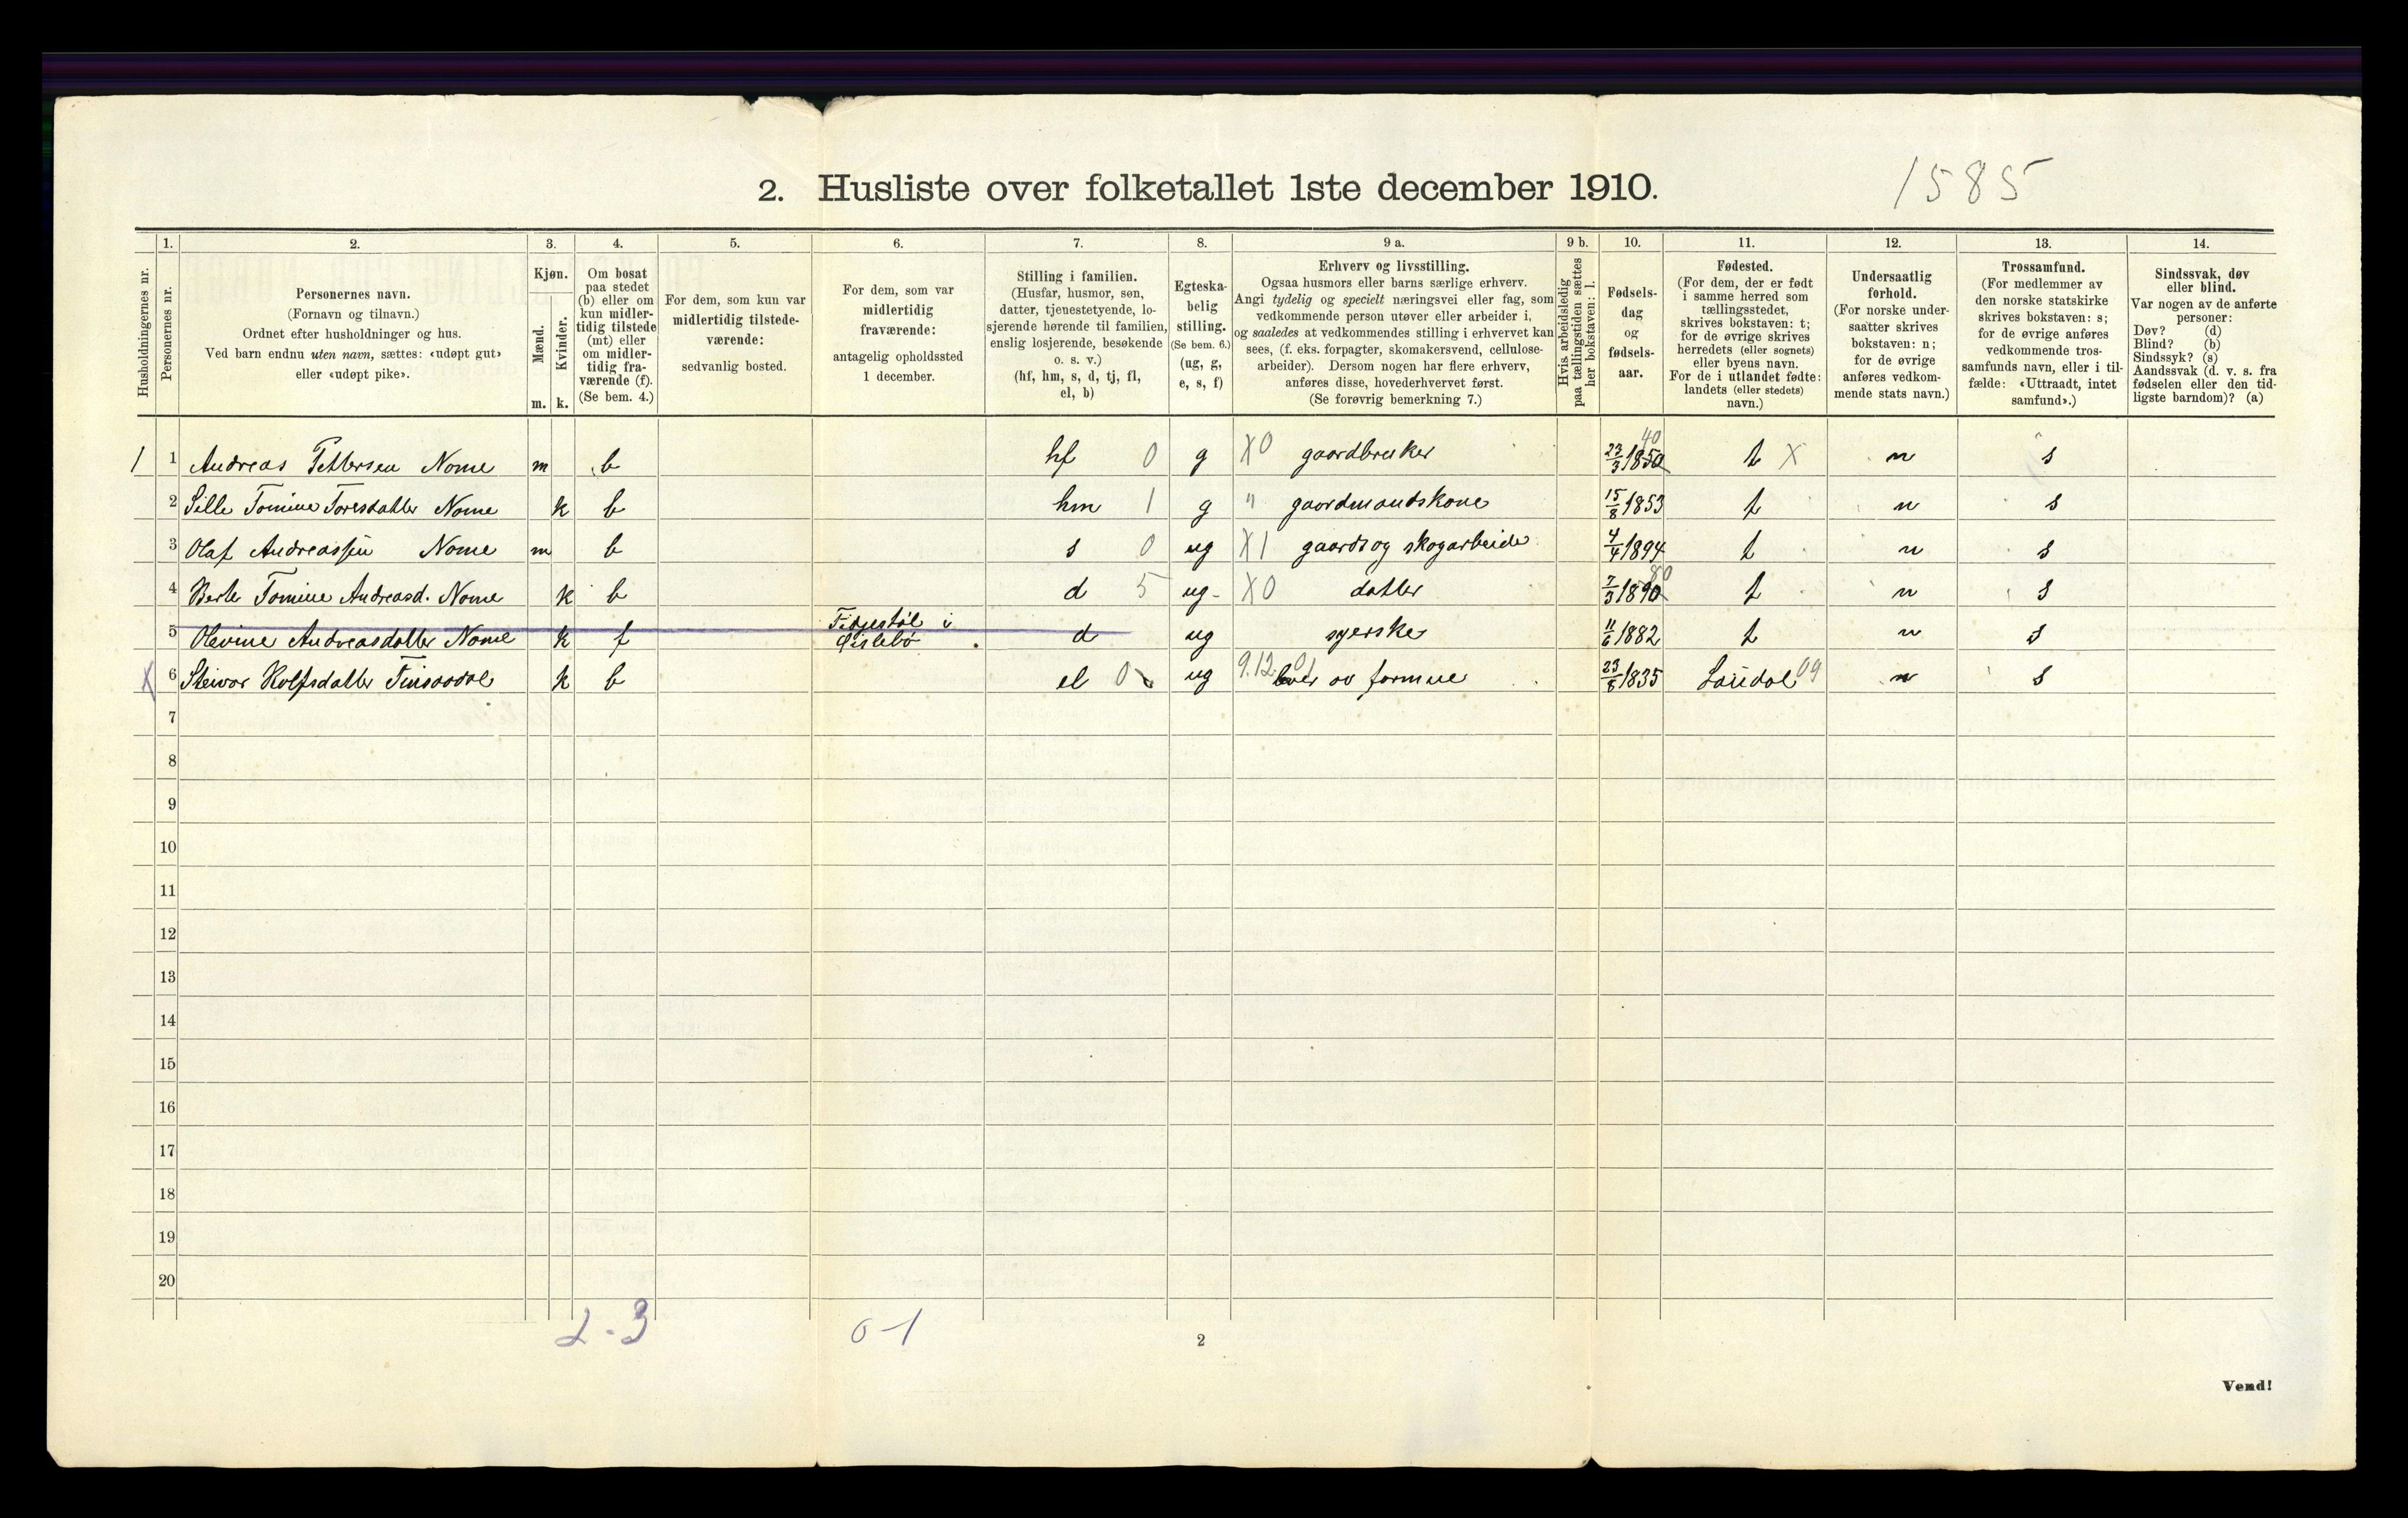 2. Husliste over folketallet 1ste december 1910.
1585
Husholdningernes nr.
1.
Personernes nr.
2.
Personernes navn.
(Fornavn og tilnavn.)
Ordnet efter husholdninger og hus.
Ved barn endnu uten navn, sættes: «udøpt gut»
eller «udøpt pike».
3.
Kjøn.
Mænd.
Kvinder.
m. k.
4.
Om bosat
paa stedet
(b) eller om
kun midler-
tidig tilstede
(mt) eller
om midler-
tidig fra-
værende (f).
(Se bem. 4.)
5.
For dem, som kun var
midlertidig tilstede-
værende:
sedvanlig bosted.
6.
For dem, som var
midlertidig
fraværende:
antagelig opholdssted
1 december.
7.
Stilling i familien.
(Husfar, husmor, søn,
datter, tjenestetyende, lo-
sjerende hørende til familien,
enslig losjerende, besøkende
o. s. v.)
(hf, hm, s, d, tj, fl,
el, b)
8.
Egteska-
belig
stilling.
(Se bem. 6.)
(ug, g,
e, s, f)
9 a.
Erhverv og livsstilling.
Ogsaa husmors eller barns særlige erhverv.
Angi tydelig og specielt næringsvei eller fag, som
vedkommende person utøver eller arbeider i,
og saaledes at vedkommendes stilling i erhvervet kan
sees, (f. eks. forpagter, skomakersvend, cellulose-
arbeider). Dersom nogen har flere erhverv,
anføres disse, hovederhvervet først.
(Se forøvrig bemerkning 7.)
9 b.
Hvis arbeidsledig
paa tællingstiden sættes
her bokstaven: l.
10.
Fødsels-
dag
og
fødsels-
aar.
11.
Fødested.
(For dem, der er født
i samme herred som
tællingsstedet,
skrives bokstaven: t;
for de øvrige skrives
herredets (eller sognets)
eller byens navn.
For de i utlandet fødte:
landets (eller stedets)
navn.)
12.
Undersaatlig
forhold.
(For norske under-
saatter skrives
bokstaven: n;
for de øvrige
anføres vedkom-
mende stats navn.)
13.
Trossamfund.
(For medlemmer av
den norske statskirke
skrives bokstaven: s;
for de øvrige anføres
vedkommende tros-
samfunds navn, eller i til-
fælde: «Uttraadt, intet
samfund».)
14.
Sindssvak, døv
eller blind.
Var nogen av de anførte
personer:
Døv? (d)
Blind? (b)
Sindssyk? (s)
Aandssvak (d. v. s. fra
fødselen eller den tid-
ligste barndom)? (a)
1 1 Andreas Pettersen Nome m b hf 0 g X0 gaardbruker 23/3 1850 40 t X n s
2 Sille Tomine Toresdatter Nome k b hm 1 g " gaardmandskone 15/8 1853 t n s
3 Olaf Andreassen Nome m b s 0 ug X1 gaards og skogarbeide 4/4 1894 t n s
4 Berte Tomine Andreasd. Nome k b d 5 ug X0 datter 7/3 1890 80 t n s
5 Olevine Andreasdatter Nome k f i Øislebø d ug syerske 11/6 1882 t n s
X 6 Steivor Rolfsdatter k b el 0 ug 9.12 01 lever av formue 23/8 1835 Laudal 09 n s
7
8
9
10
11
12
13
14
15
16
17
18
19
20
2-3
0-1
2
Vend!